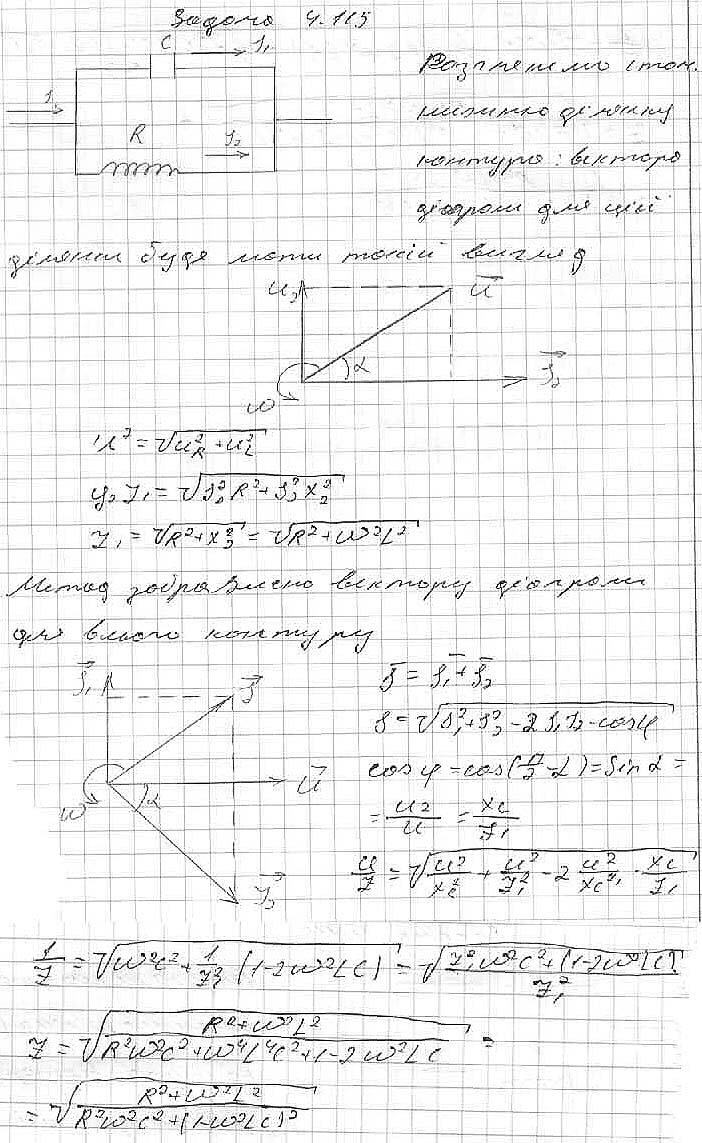 Задача 4.115
C I₁
Розглянемо спочатку
I
нижню ділянку
R I₂
контура: векторна
діаграма для цієї
ділянки буде мати такий вигляд
U₂ U
α
ω I₂
U² = √(U²_R + U²_L)
I₂ Z₁ = √(I₂² R² + I₂² X₂²)
Z₁ = √(R² + X₂²) = √(R² + ω²L²)
векторну діаграму
для всього контуру
I₁ I I = I₁ + I₂
I = √(I₁² + I₂² - 2 I₁ I₂ · cos φ)
U cos φ = cos(π/2 - α) = sin α =
ω α = U₂/U = X_L/Z₁
U/Z = √(U²/X_c² + U²/Z₁² - 2 U²/(X_c Z₁) · X_L/Z₁)
I₂
1/Z = √(ω²C² + 1/Z₁² (1-2ω²LC)) = √((Z₁²ω²C² + (1-2ω²LC))/Z₁²)
Z = √((R²+ω²L²)/(R²ω²C² + ω⁴L⁴C² + 1 - 2ω²LC)) =
= √((R²+ω²L²)/(R²ω²C² + (1-ω²LC)²))